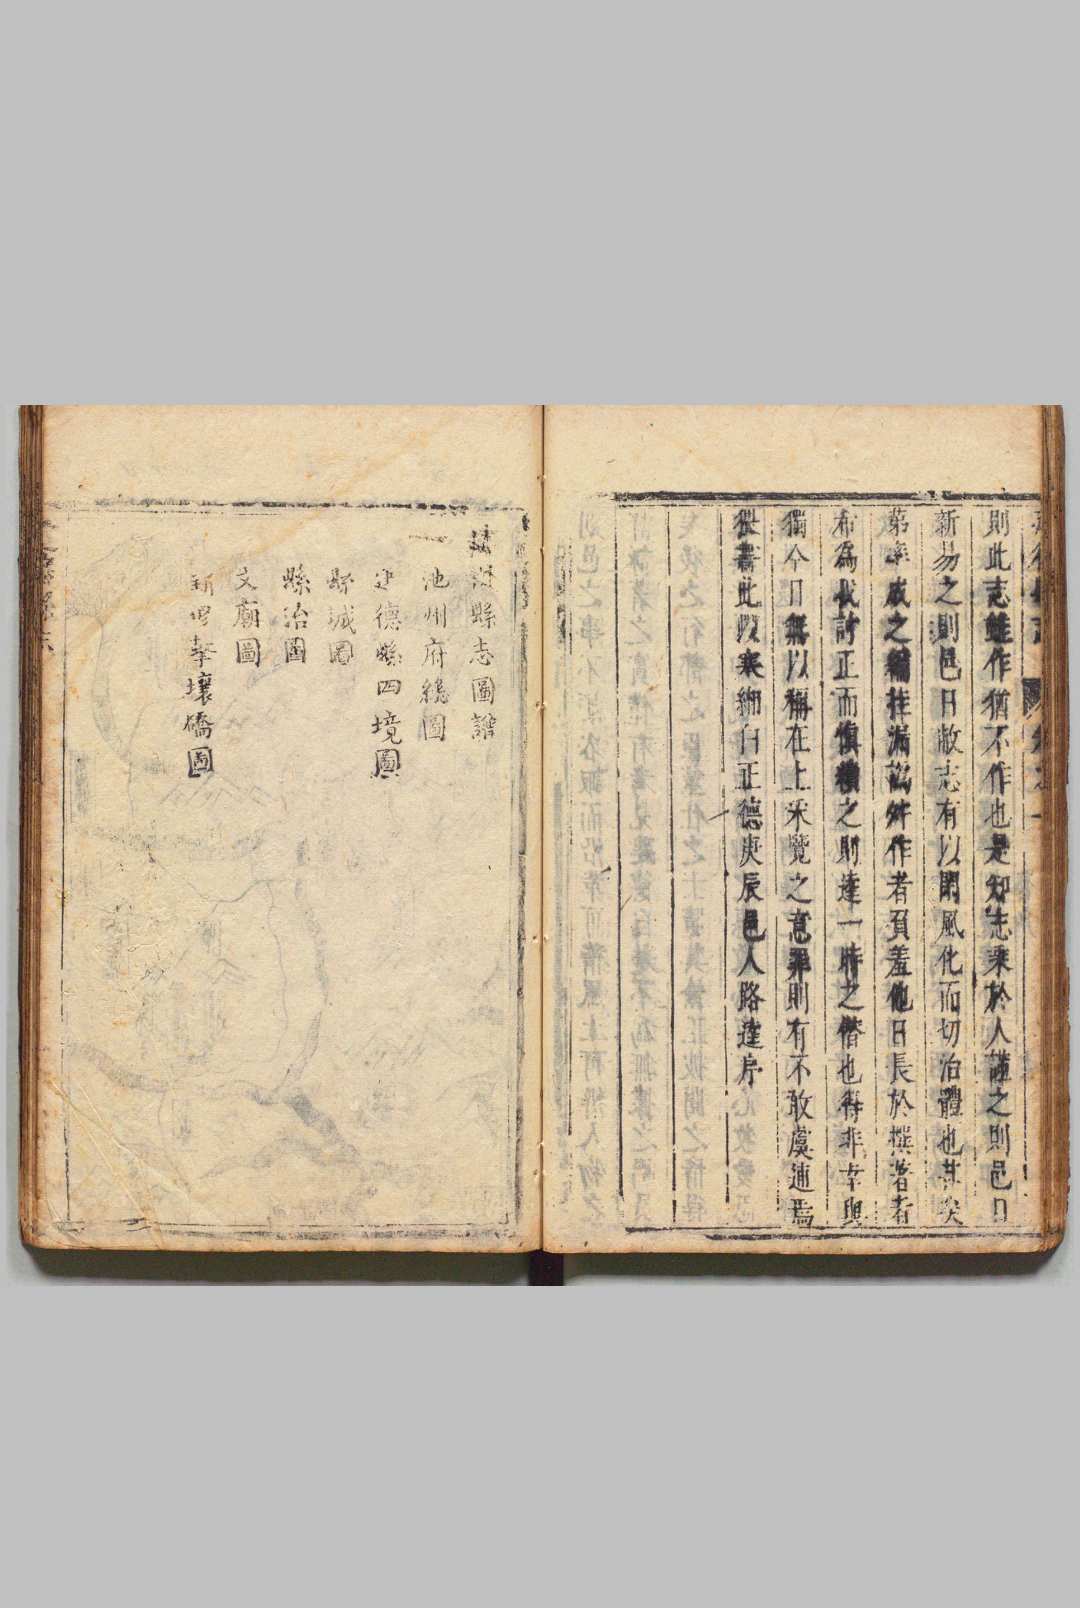 則此志雖作猶不作也是知志乘於人謹之則邑日
新易之則邑日敝志有以關風化而切治體也其
第率成之編挂漏訛舛作者負羞他日長於撰著者
和為我討正而慎續之則達一時之僭也得非幸與
獨今日無以稱在上采覽之意罪則有不敢虞逋焉
畏書此以衷細曰正德庚辰邑人路達序
縣志圖譜
池州府總圖
建德縣四境圖
縣城圖
縣治圖
文廟圖
新 擊壤橋圖